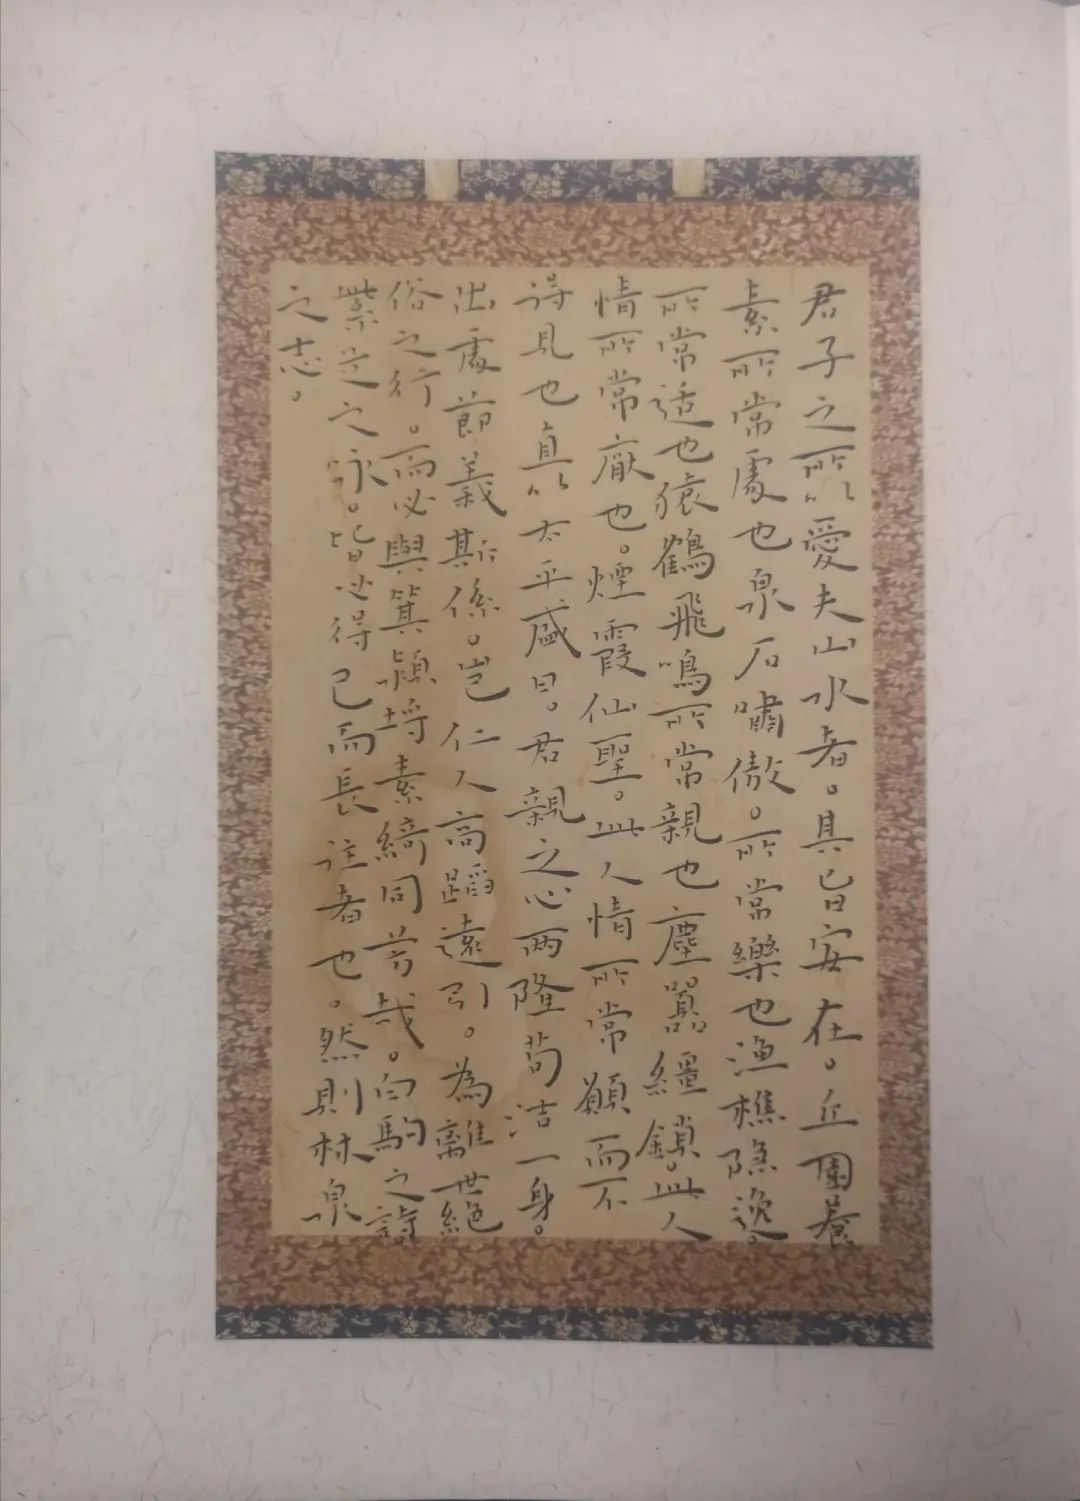 君子之所以愛夫山水者。其旨安在。丘園養
素所常處也泉石嘯傲。所常樂也漁樵隱逸。
所常适也猿鶴飛鳴所常親也塵囂繮鎖。此人
情所常厭也。煙霞仙聖。此人情所常願而不
得見也直以太平盛日。君親之心兩隆苟洁一身。
出處節義斯係。豈仁人高蹈遠引。為離世絕
俗之行。而必與箕潁埒素綺同芳哉。白駒之詩
紫芝之詠。皆必得已而長往者也。然則林泉
之志。